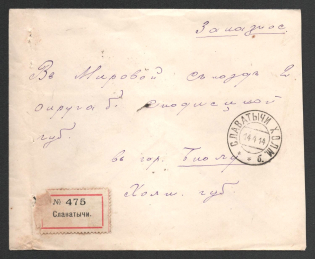 Заказное
Въ Мировой съездъ 2
округа б. Сѣдлецкой
губ.
въ гор. Бѣлу
Холм. губ.
СЛАВАТЫЧИ ХОЛМ.
№ 475
Славатычи.